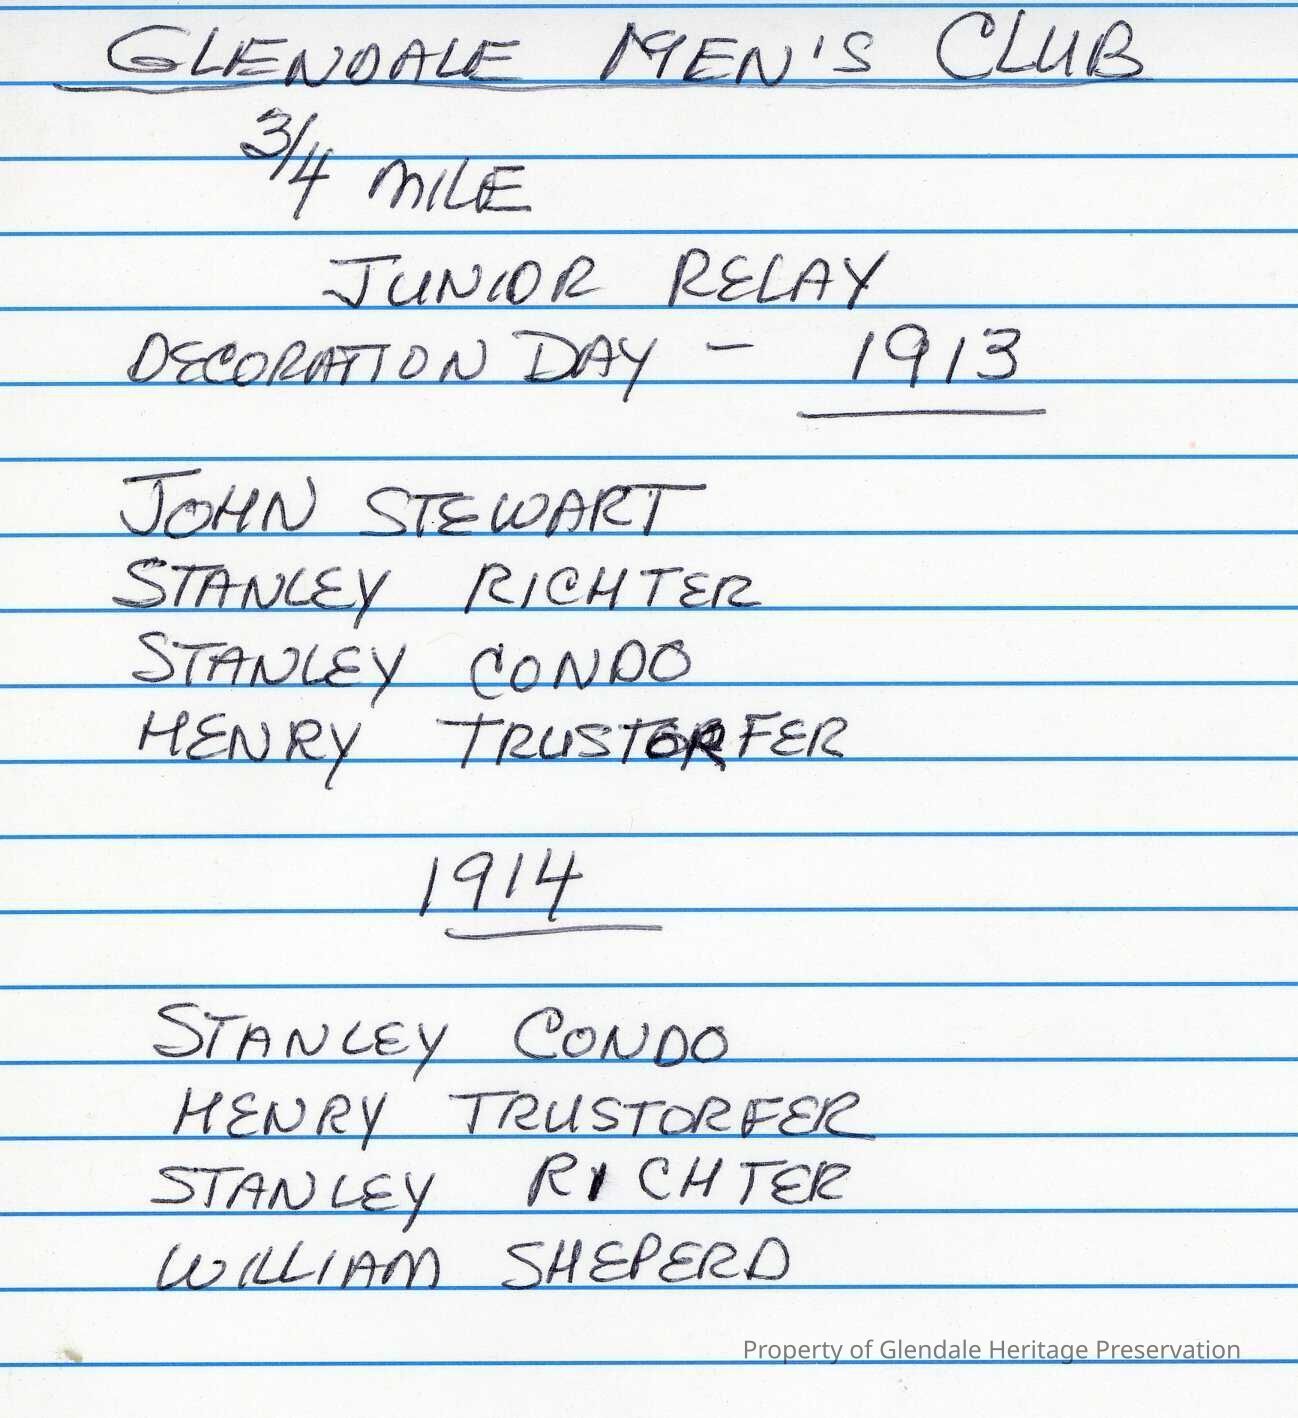 GLENDALE MEN'S CLUB
3/4 MILE
JUNIOR RELAY
DECORATION DAY - 1913
JOHN STEWART
STANLEY RICHTER
STANLEY CONDO
HENRY TRUSTORFER
1914
STANLEY CONDO
HENRY TRUSTORFER
STANLEY RICHTER
WILLIAM SHEPERD
Property of Glendale Heritage Preservation